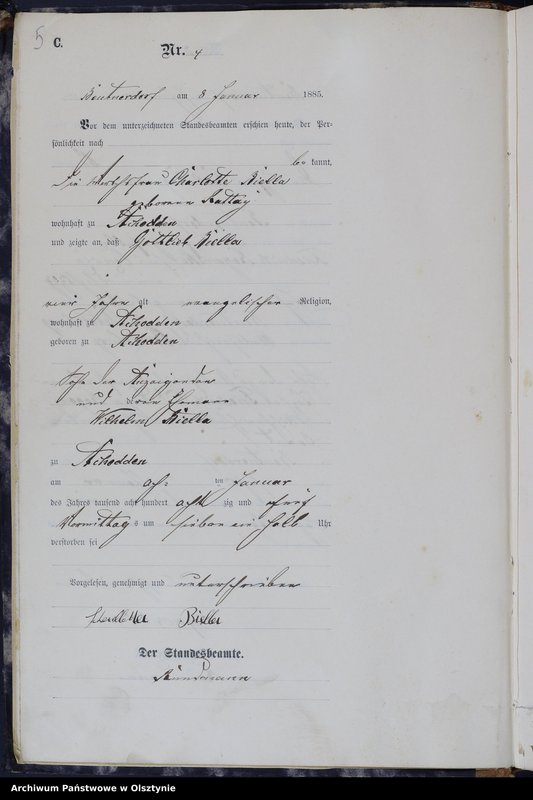 5 C.
Nr. 4
Beutnerdorf am 8 Januar 1885.
Vor dem unterzeichneten Standesbeamten erschien heute, der Per-
sönlichkeit nach
be kannt,
Die Wirthsfrau Charlotte Biella
geborene
wohnhaft zu Schodden
und zeigte an, daß Gottlieb Biella
vier Jahre alt evangelischer Religion,
wohnhaft zu Schodden
geboren zu Schodden
Sohn der Anzeigenden
und deren Ehemann
Wilhelm Biella
zu Schodden
am acht ten Januar
des Jahres tausend acht hundert acht zig und fünf
Vormittag s um sieben ein halb Uhr
verstorben sei
Vorgelesen, genehmigt und unterschrieben
Biella
Der Standesbeamte.
Archiwum Państwowe w Olsztynie